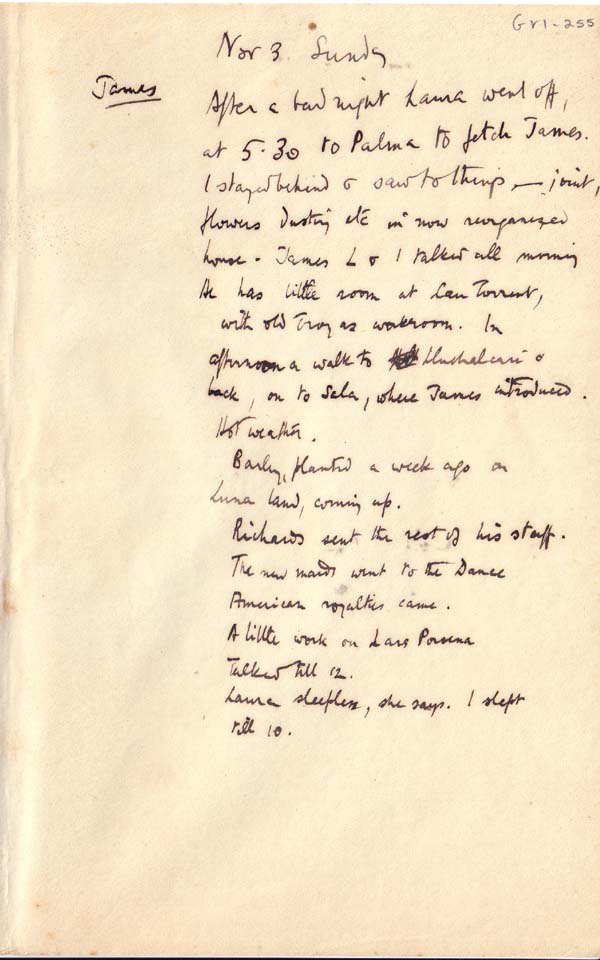 GV1-255
Nov 3 Sunday
James
After a bad night Laura went off,
at 5.30 to Palma to fetch James.
I stayed behind & saw to things — joint,
flowers dusting etc in now reorganized
house. James L & I talked all morning
He has little room at Can Torrent,
with old Troy as workroom. In
afternoon a walk to Lluchalcari &
back, on to Sala, where James introduced.
Hot weather.
Barley, planted a week ago on
Luna land, coming up.
Richards sent the rest of his stuff.
The new maids went to the Dance
American royalties came.
A little work on Lars Porsena
Talked till 12.
Laura sleepless, she says. I slept
till 10.